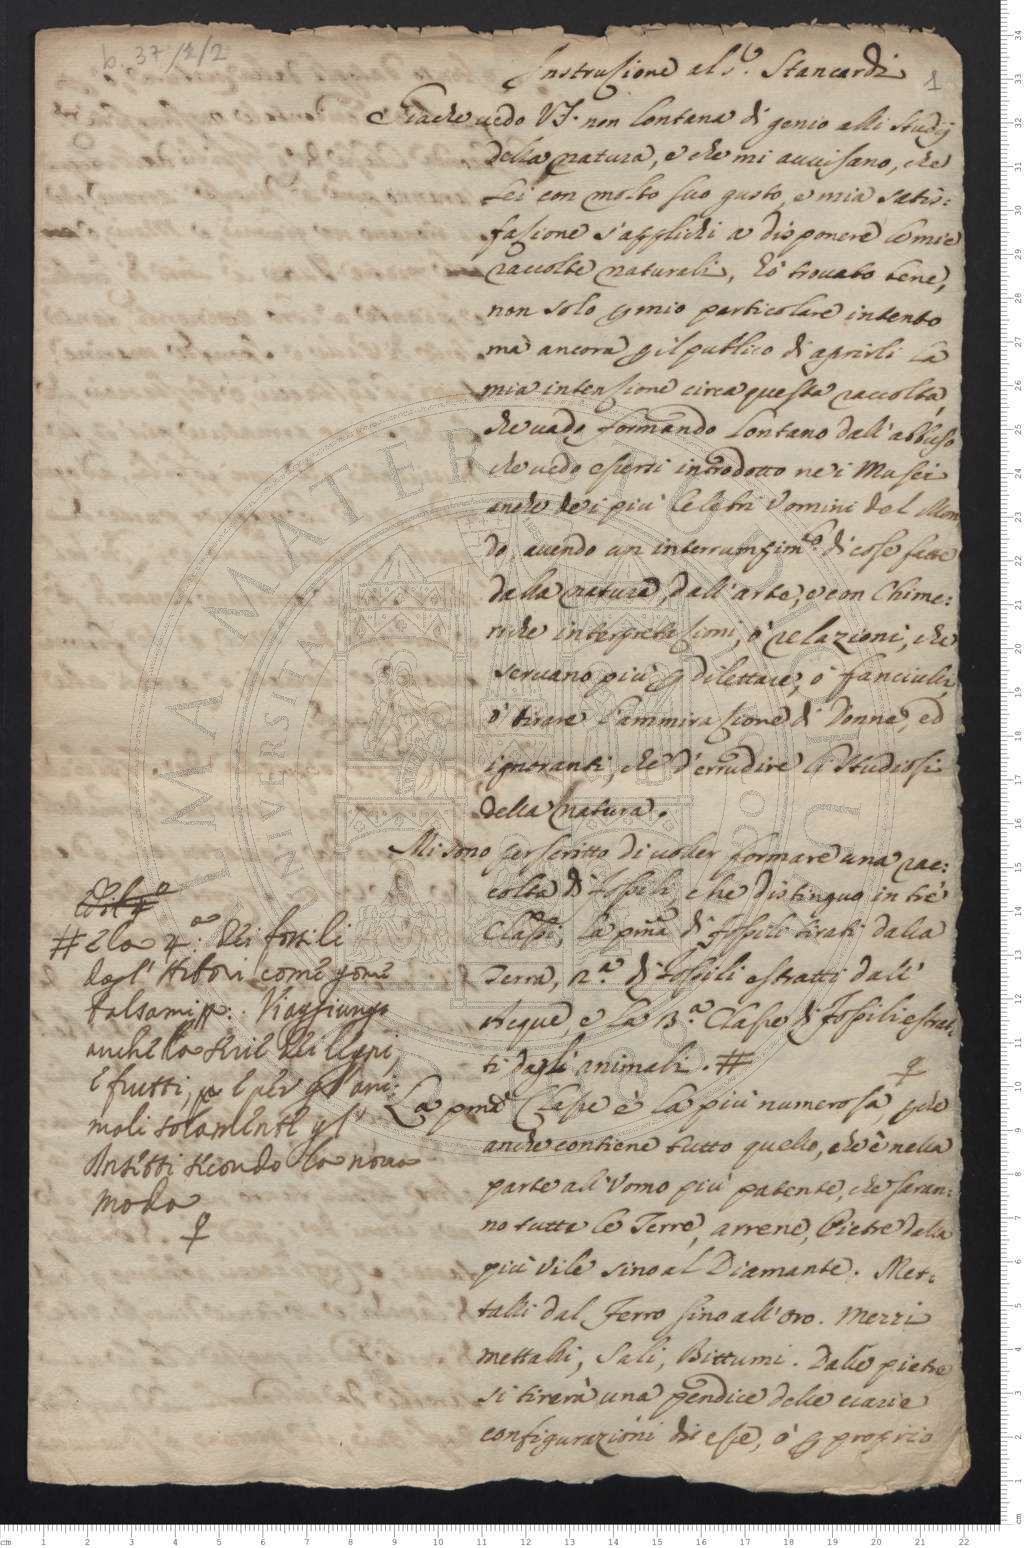 b. 37/2/2
1
Instrusione al S.r Stancardi
Giache vedo VS. non lontana di genio alli studij
della natura, e che mi avvisano, che
Lei con molto suo gusto, e mia satis:
fasione s'applichi a disponere le mie
raccolte naturali, hò trovato bene,
non solo p mio particolare intento
mà ancora p il publico di aprirli la
mia intensione circa questa raccolta,
che vado formando lontano dall'abbuso
che vedo esserci introdotto ne i Musei
anche de i più Celebri Uomini del Mon
do, avendo un interrumpim.to di cose fatte
dalla natura, dall'arte, e con Chime:
riche interpretasioni, ò relazioni, che
servano più p dilettare, ò fanciulli,
ò tirare l'ammirasione di Donne, ed
ignoranti, che d'errudire li studiosi
della natura.
Mi sono perscritto di voler formare una rac:
colta di fossili, che distinguo in trè
Classi, la pma di fossili tirati dalla
Terra, 2.a di fossili estratti dall'
Acque, e la 3.a Classe di fossili estrat
ti dagli animali. #
# e la 4.a dei fossili
degl'Arbori come gome
balsami
anche la
e frutti,
mali solamente
Insetti secondo la nova
moda
La pma Classe è la più numerosa
anche contiene tutto quello, che è nella
parte all'Uomo più patente, che saran:
no tutte le Terre, arrene, Pietre dalla
più vile sino al Diamante. Met:
talli dal Ferro sino all'oro. Mezzi
mettalli, Sali, Bittumi. Dalle pietre
si tirerà una pendice delle varie
configurazioni di esse, ò p proprio